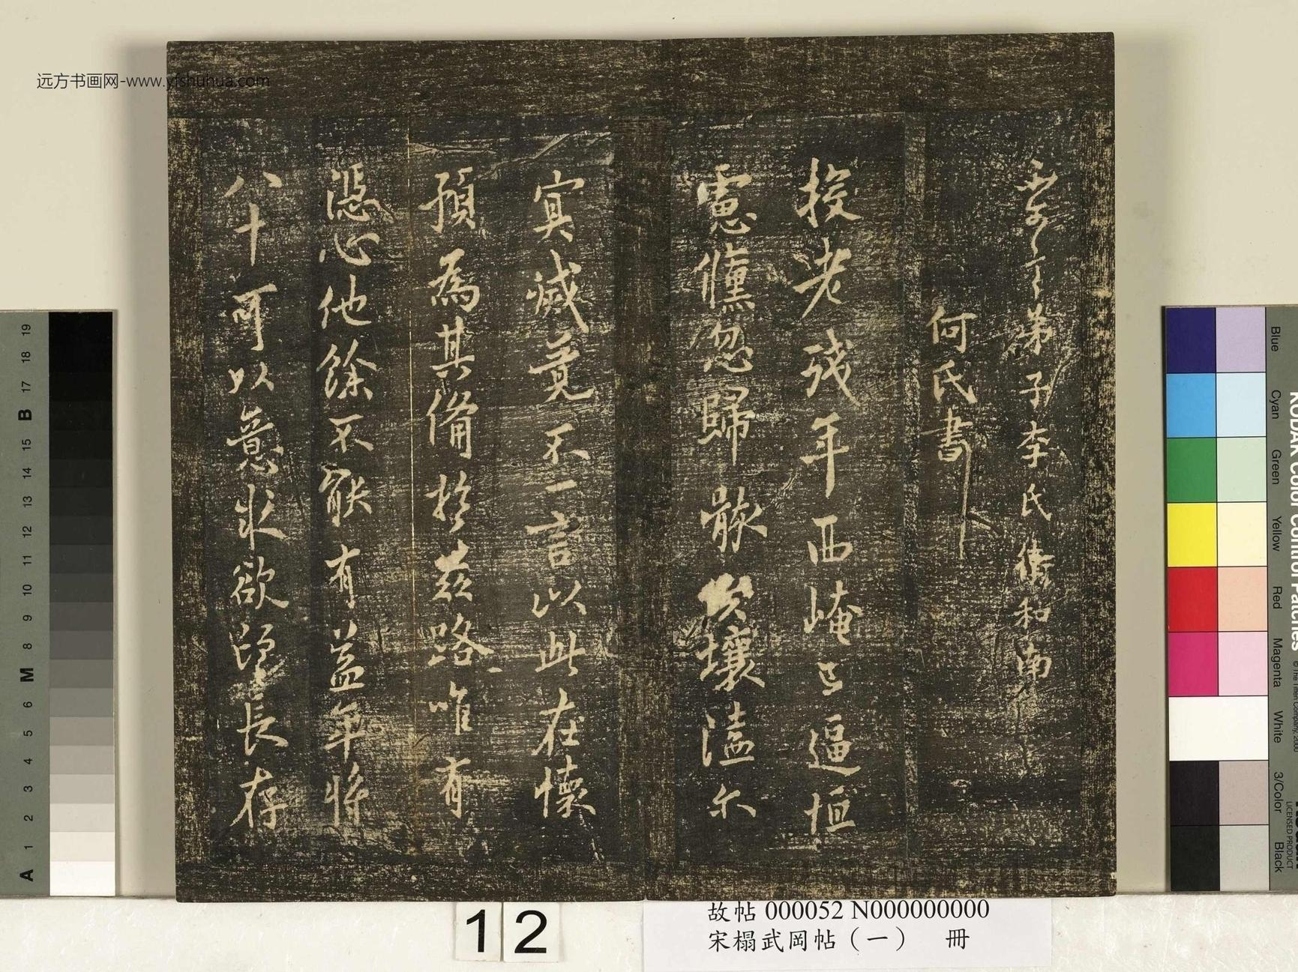 弟子李氏衛和南
何氏書
投老殘年西崦已逼恒
慮儻忽歸骸後壤溘尔
寘滅竟不一言以此在懷
預為其備於茲路唯有
憑心他餘不能有益年將
八十可以意求欲長存
远方书画网-www.yishuhua.com
12
故帖 000052 N000000000
宋榻武岡帖（一） 冊
KODAK Color Control Patches
Blue
Cyan
Green
Yellow
Red
Magenta
White
3/Color
Black
A 1 2 3 4 5 6 M 8 9 10 11 12 13 14 15 B 17 18 19